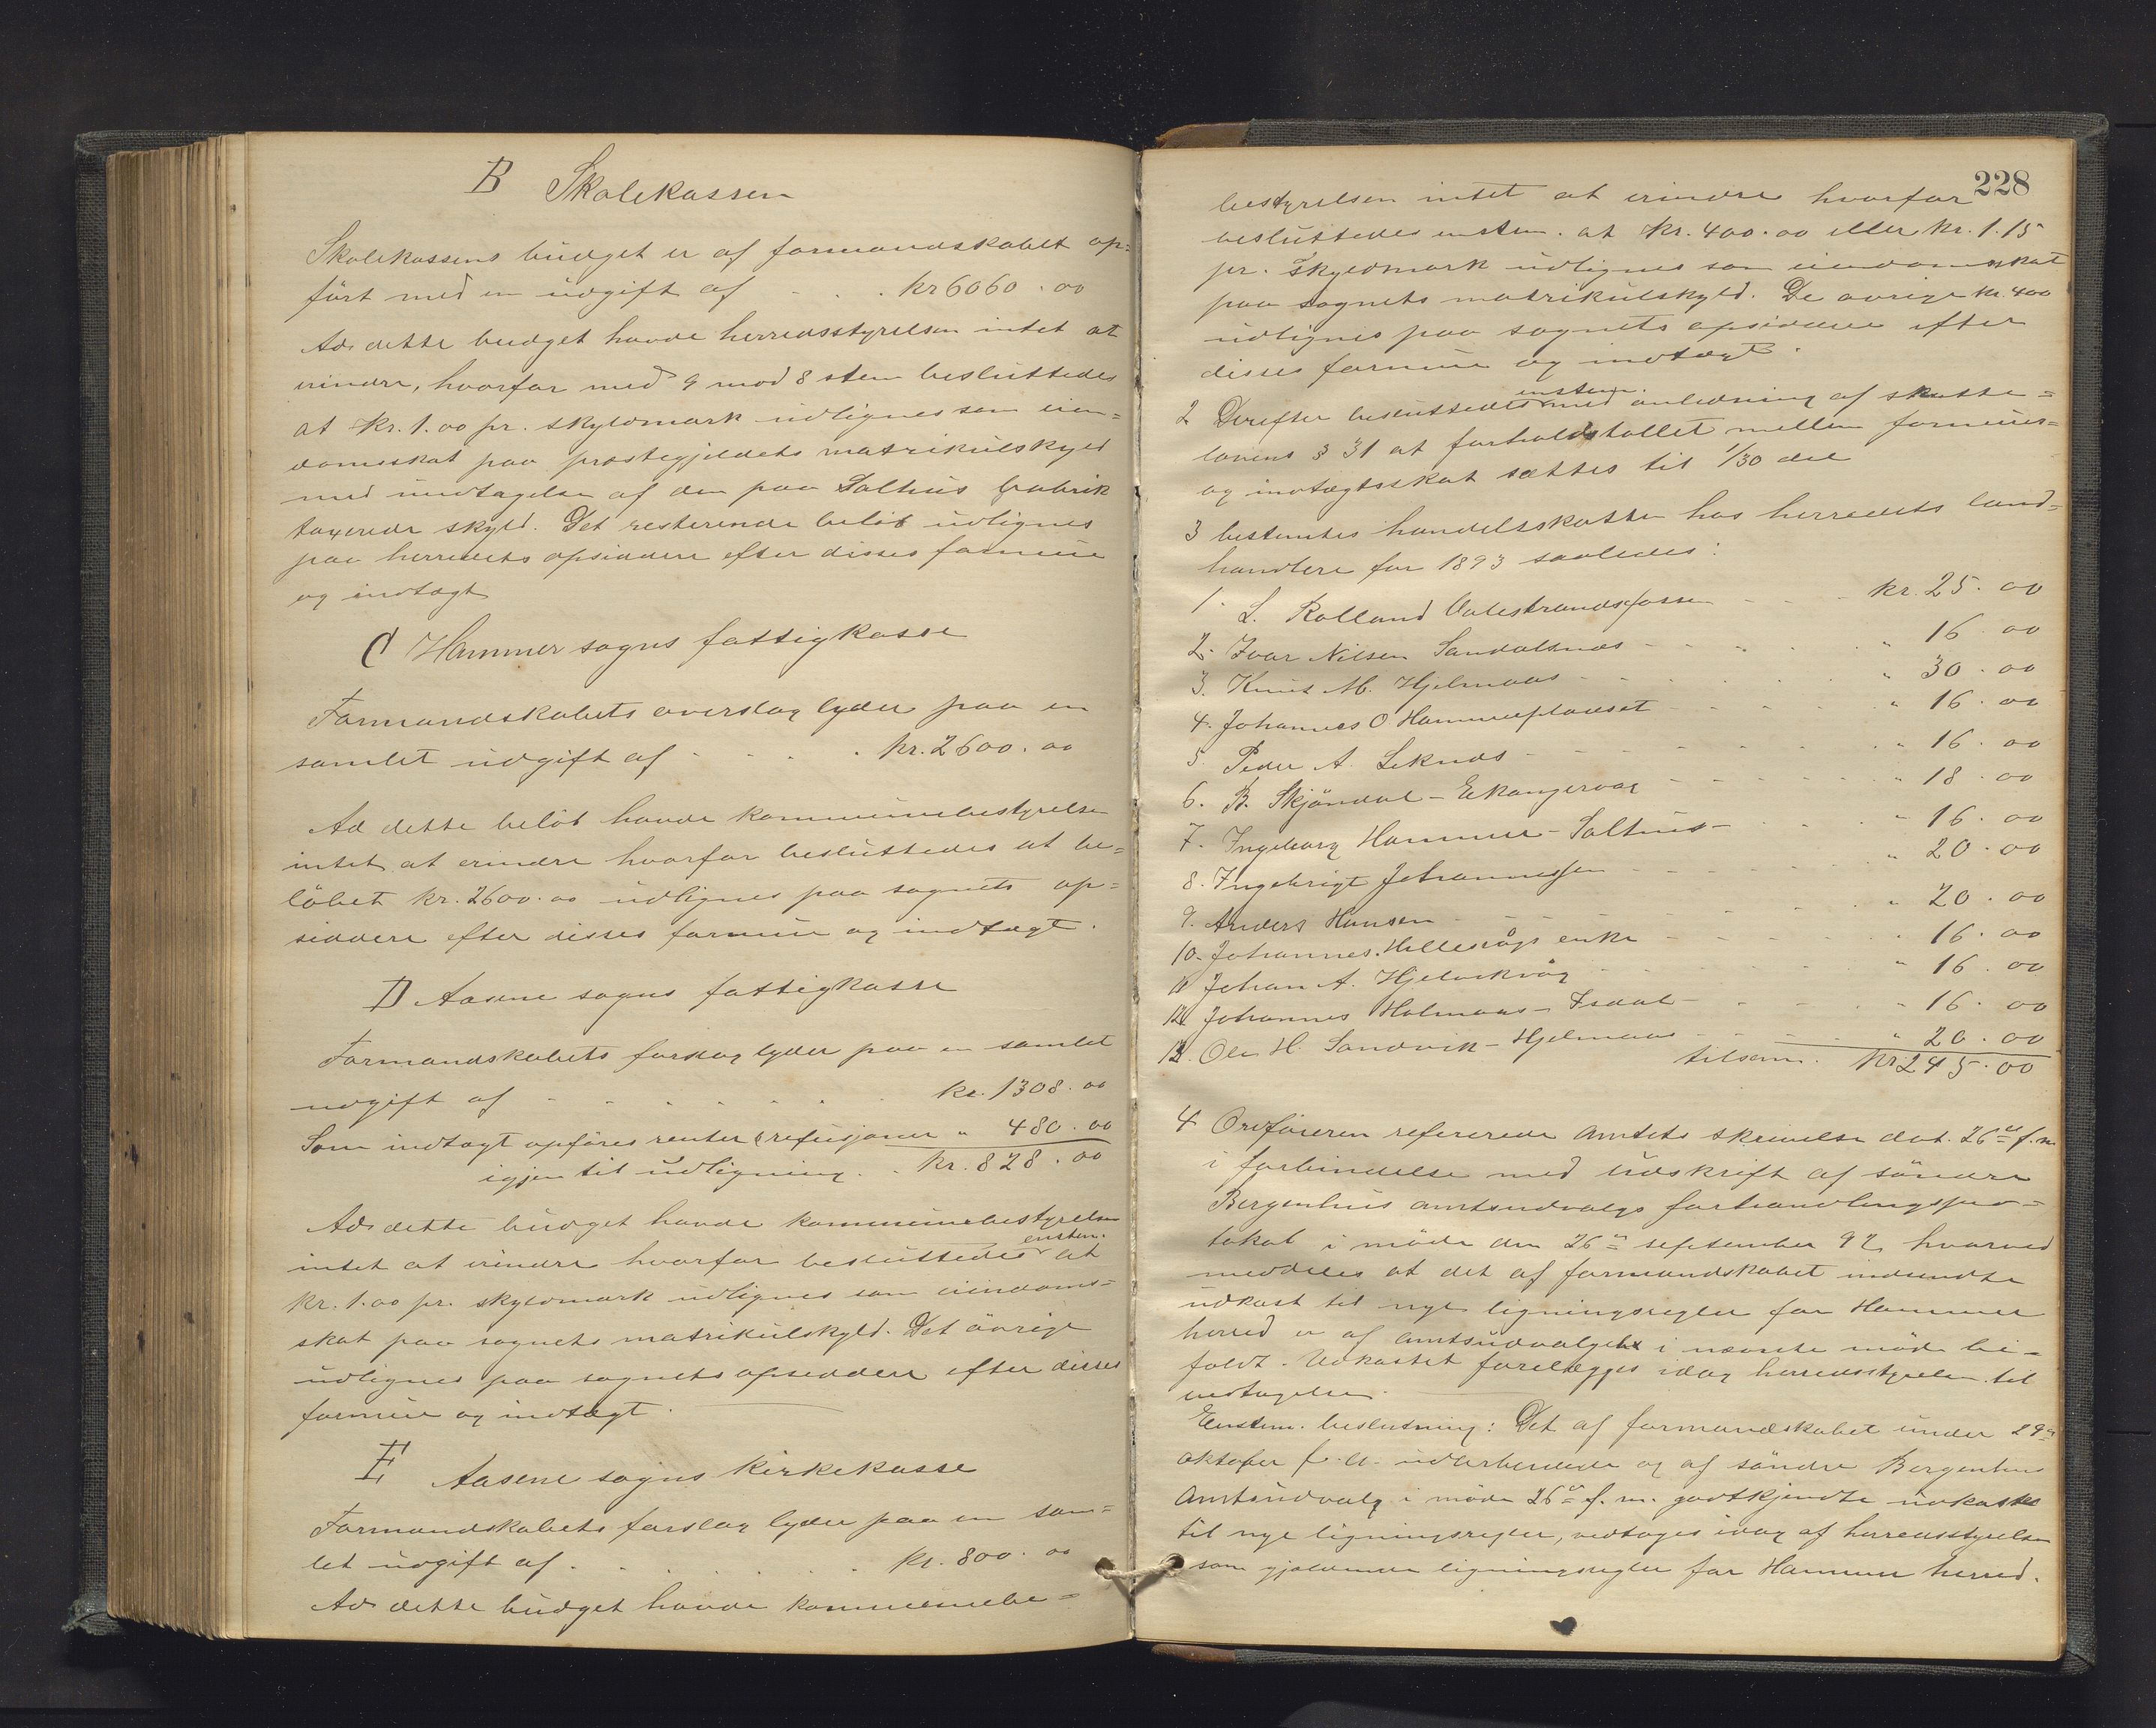 B Skolekassen
Skolekassens budget er af formandskabet op=
ført med en udgift af . . . kr 6060.00
Ad dette budget havde herredsstyrelsen intet at
erindre, hvorfor med 9 mod 8 stem besluttedes
at kr. 1.00 pr. skyldmark udlignes som eien=
domsskat paa præstegjeldets matrikulskyld
med undtagelse af den paa Salhus fabrik
taxerede skyld. Det resterende beløb udlignes
paa herredets opsiddere efter disses formue
og indtægt
C Hammer sogns fattigkasse
Formandskabets overslag lyder paa en
samlet udgift af . . . . kr. 2600.00
Ad dette beløb havde kommunebestyrelsen
intet at erindre hvorfor besluttedes at be=
løbet kr. 2600.00 udlignes paa sognets op=
siddere efter disses formue og indtægt.
D Aasene sogns fattigkasse
Formandskabets forslag lyder paa en samlet
udgift af - - - - - - kr. 1308.00
Som indtægt opføres renter & refusjoner " 480.00
igjen til udligning . . kr. 828.00
Ad dette budget havde kommunebestyrelsen
intet at erindre hvorfor besluttedes enstem. at
kr. 1.00 pr. skyldmark udlignes som eiendoms=
skat paa sognets matrikulskyld. Det øvrige
udlignes paa sognets opsiddere efter disses
formue og indtægt.
E Aasene sogns kirkekasse
Formandskabets forslag lyder paa en sam=
let udgift af . . . . . . kr. 800.00
Ad dette budget havde kommunebe=
228
bestyrelsen intet at erindre hvorfor
besluttedes enstem. at kr. 400.00 eller kr. 1.15
pr. skyldmark udlignes som eiendomsskat
paa sognets matrikulskyld. De øvrige kr. 400
udlignes paa sognets opsiddere efter
disses formue og indtægt.
2 Derefter besluttedes enstem. med anledning af skatte=
lovens § 31 at forholdstallet mellem formues=
og indtægtsskat sættes til 1/30 del
3 bestemtes handelsskatten hos herredets land=
handlere for 1893 saaledes:
1. L. Rolland Valestrandsfossen - - - kr. 25.00
2. Ivar Nilsen Sandalsnæs - - - - " 16.00
3. Knut M. Hjelmaas - - - - - " 30.00
4. Johannes O Hammerpladset - - - - " 16.00
5. Peder A. Leknæs - - - - - " 16.00
6. B. Skjøndal - Eikangervaag - - - - " 18.00
7. Ingeborg Hammer - Salhus - - - - " 16.00
8. Ingebrigt Johannessen - - - - " 20.00
9. Anders Hansen - - - - - " 20.00
10. Johannes Hillesvågs enke - - - - " 16.00
11 Johan A. Hjelvikvåg - - - - " 16.00
12 Johannes Holmaas - Isdal - - - - " 16.00
13. Ole H. Sandvik - Hjelmaas - - - - " 20.00
tilsam. kr. 245.00
4 Ordføreren refererede Amtets skrivelse dat. 26de f.m.
i forbindelse med udskrift af søndre
Bergenhus amtsudvalgs forhandlingspro=
tokol i møde den 26de september 92, hvorved
meddeles at det af formandskabet indsendte
udkast til nye ligningsregler for Hammer
herred er af amtsudvalget i nævnte møde bi=
faldt. Udkastet forelægges idag herredsstyrelsen til
vedtagelse.
Enstem. beslutning: Det af formandskabet under 29de
oktober f. a. udarbeidede og af søndre Bergenhus
Amtsudvalg i møde 26de f. m. godtkjendte udkast
til nye ligningsregler, vedtoges idag af herredsstyrelsen
som gjældende ligningsregler for Hammer herred.